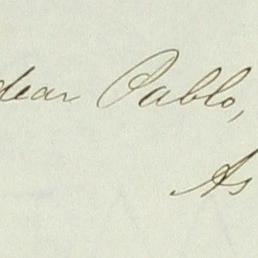 dear Pablo,
As